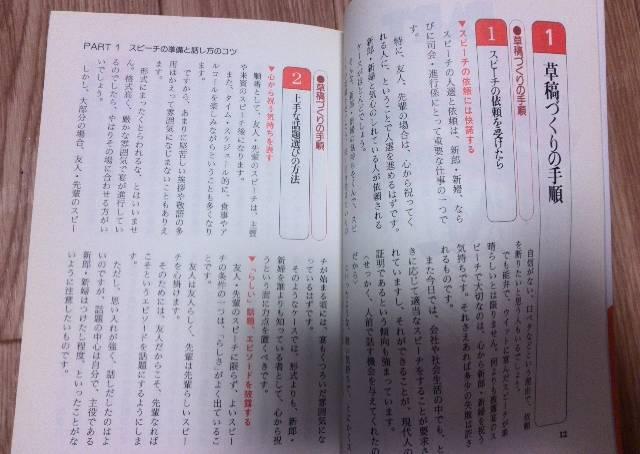 1 草稿づくりの手順
●草稿づくりの手順
1 スピーチの依頼を受けたら
▼スピーチの依頼には快諾する
スピーチの人選と依頼は、新郎・新婦、なら
びに司会・進行係にとって重要な仕事の一つで
す。
特に、友人、先輩の場合は、心から祝ってく
れる人に、ということで人選を進めるはずです。
新郎・新婦と気心のしれている人が依頼される
自信がない、口ベタなどという理由で、依頼
を断りたいと思う
でも能弁で、ウイットに富んだ
晴らしいとは限りません。何よりも披露宴のス
ピーチで大切なのは、心から新郎・新婦を祝う
気持ちです。それさえあれば多少の失敗は許さ
れるものです。
また今日では、会社や社会生活の中でも、と
きに応じて適当なスピーチをすることが要求さ
れていますし、それができることが、現代人の
証明であるという傾向も強まっています。
〈せっかく、人前で話す機会を与えてくれたの
だから〉
12
PART 1 スピーチの準備と話し方のコツ
●草稿づくりの手順
2 上手な話題選びの方法
▼心から祝う気持ちを表す
順序として、友人・先輩のスピーチは、主賓
や来賓のスピーチ後になります。
また、タイム・スケジュール的に、食事やア
ルコールを楽しみながらということも多くなり
ます。
ですから、あまりに堅苦しい挨拶や敬語の多
用はかえって雰囲気になじまないこともありえ
ます。
形式にまったくとらわれるな、とはいいませ
ん。格式高く、厳かな雰囲気で宴が進行してい
るのでしたら、やはりその場に合わせる方がい
いでしょう。
しかし、大部分の場合、友人・先輩のスピー
チが始まる頃には、宴もくつろいだ雰囲気にな
っているはずです。
そのようなケースでは、形式よりも、新郎・
新婦を誰よりも知っている者として、心から祝
うという面に力点を置くべきです。
▼「らしい」話題、エピソードを披露する
友人・先輩のスピーチに限らず、よいスピー
チの条件の一つは、「らしさ」がよく出ているこ
とです。
友人は友人らしく、先輩は先輩らしいスピー
チを心掛けます。
そのためには、友人だからこそ、先輩なれば
こそというエピソードを話題にするようにしま
す。
ただし、思い入れが強く、話しだしたのはよ
いのですが、話題の中心は自分で、主役である
新郎・新婦はつけたし程度、といったことがな
いように注意したいものです。